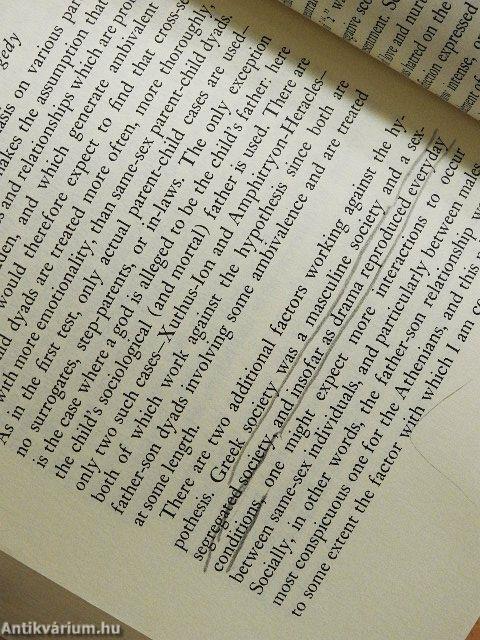 gedy
asis on various par
akes the assumption that
s and relationships which are pro
en, and which generate ambivalent
would therefore expect to find that cross-s
nd dyads are treated more often, more thoroughly,
with more emotionality, than same-sex parent-child dyads.
As in the first test, only actual parent-child cases are used—
no surrogates, step-parents, or in-laws. The only exception
is the case where a god is alleged to be the child's father; here
the child's sociological (and mortal) father is used. There are
only two such cases—Xuthus-Ion and Amphitryon-Heracles—
both of which work against the hypothesis since both are
father-son dyads involving some ambivalence and are treated
at some length.
There are two additional factors working against the hy-
pothesis. Greek society was a masculine society and a sex-
segregated society, and insofar as drama reproduced everyday
conditions, one might expect more interactions to occur
between same-sex individuals, and particularly between males.
Socially, in other words, the father-son relationship
most conspicuous one for the Athenians, and this
to some extent the factor with which I am co
Antikvárium.hu